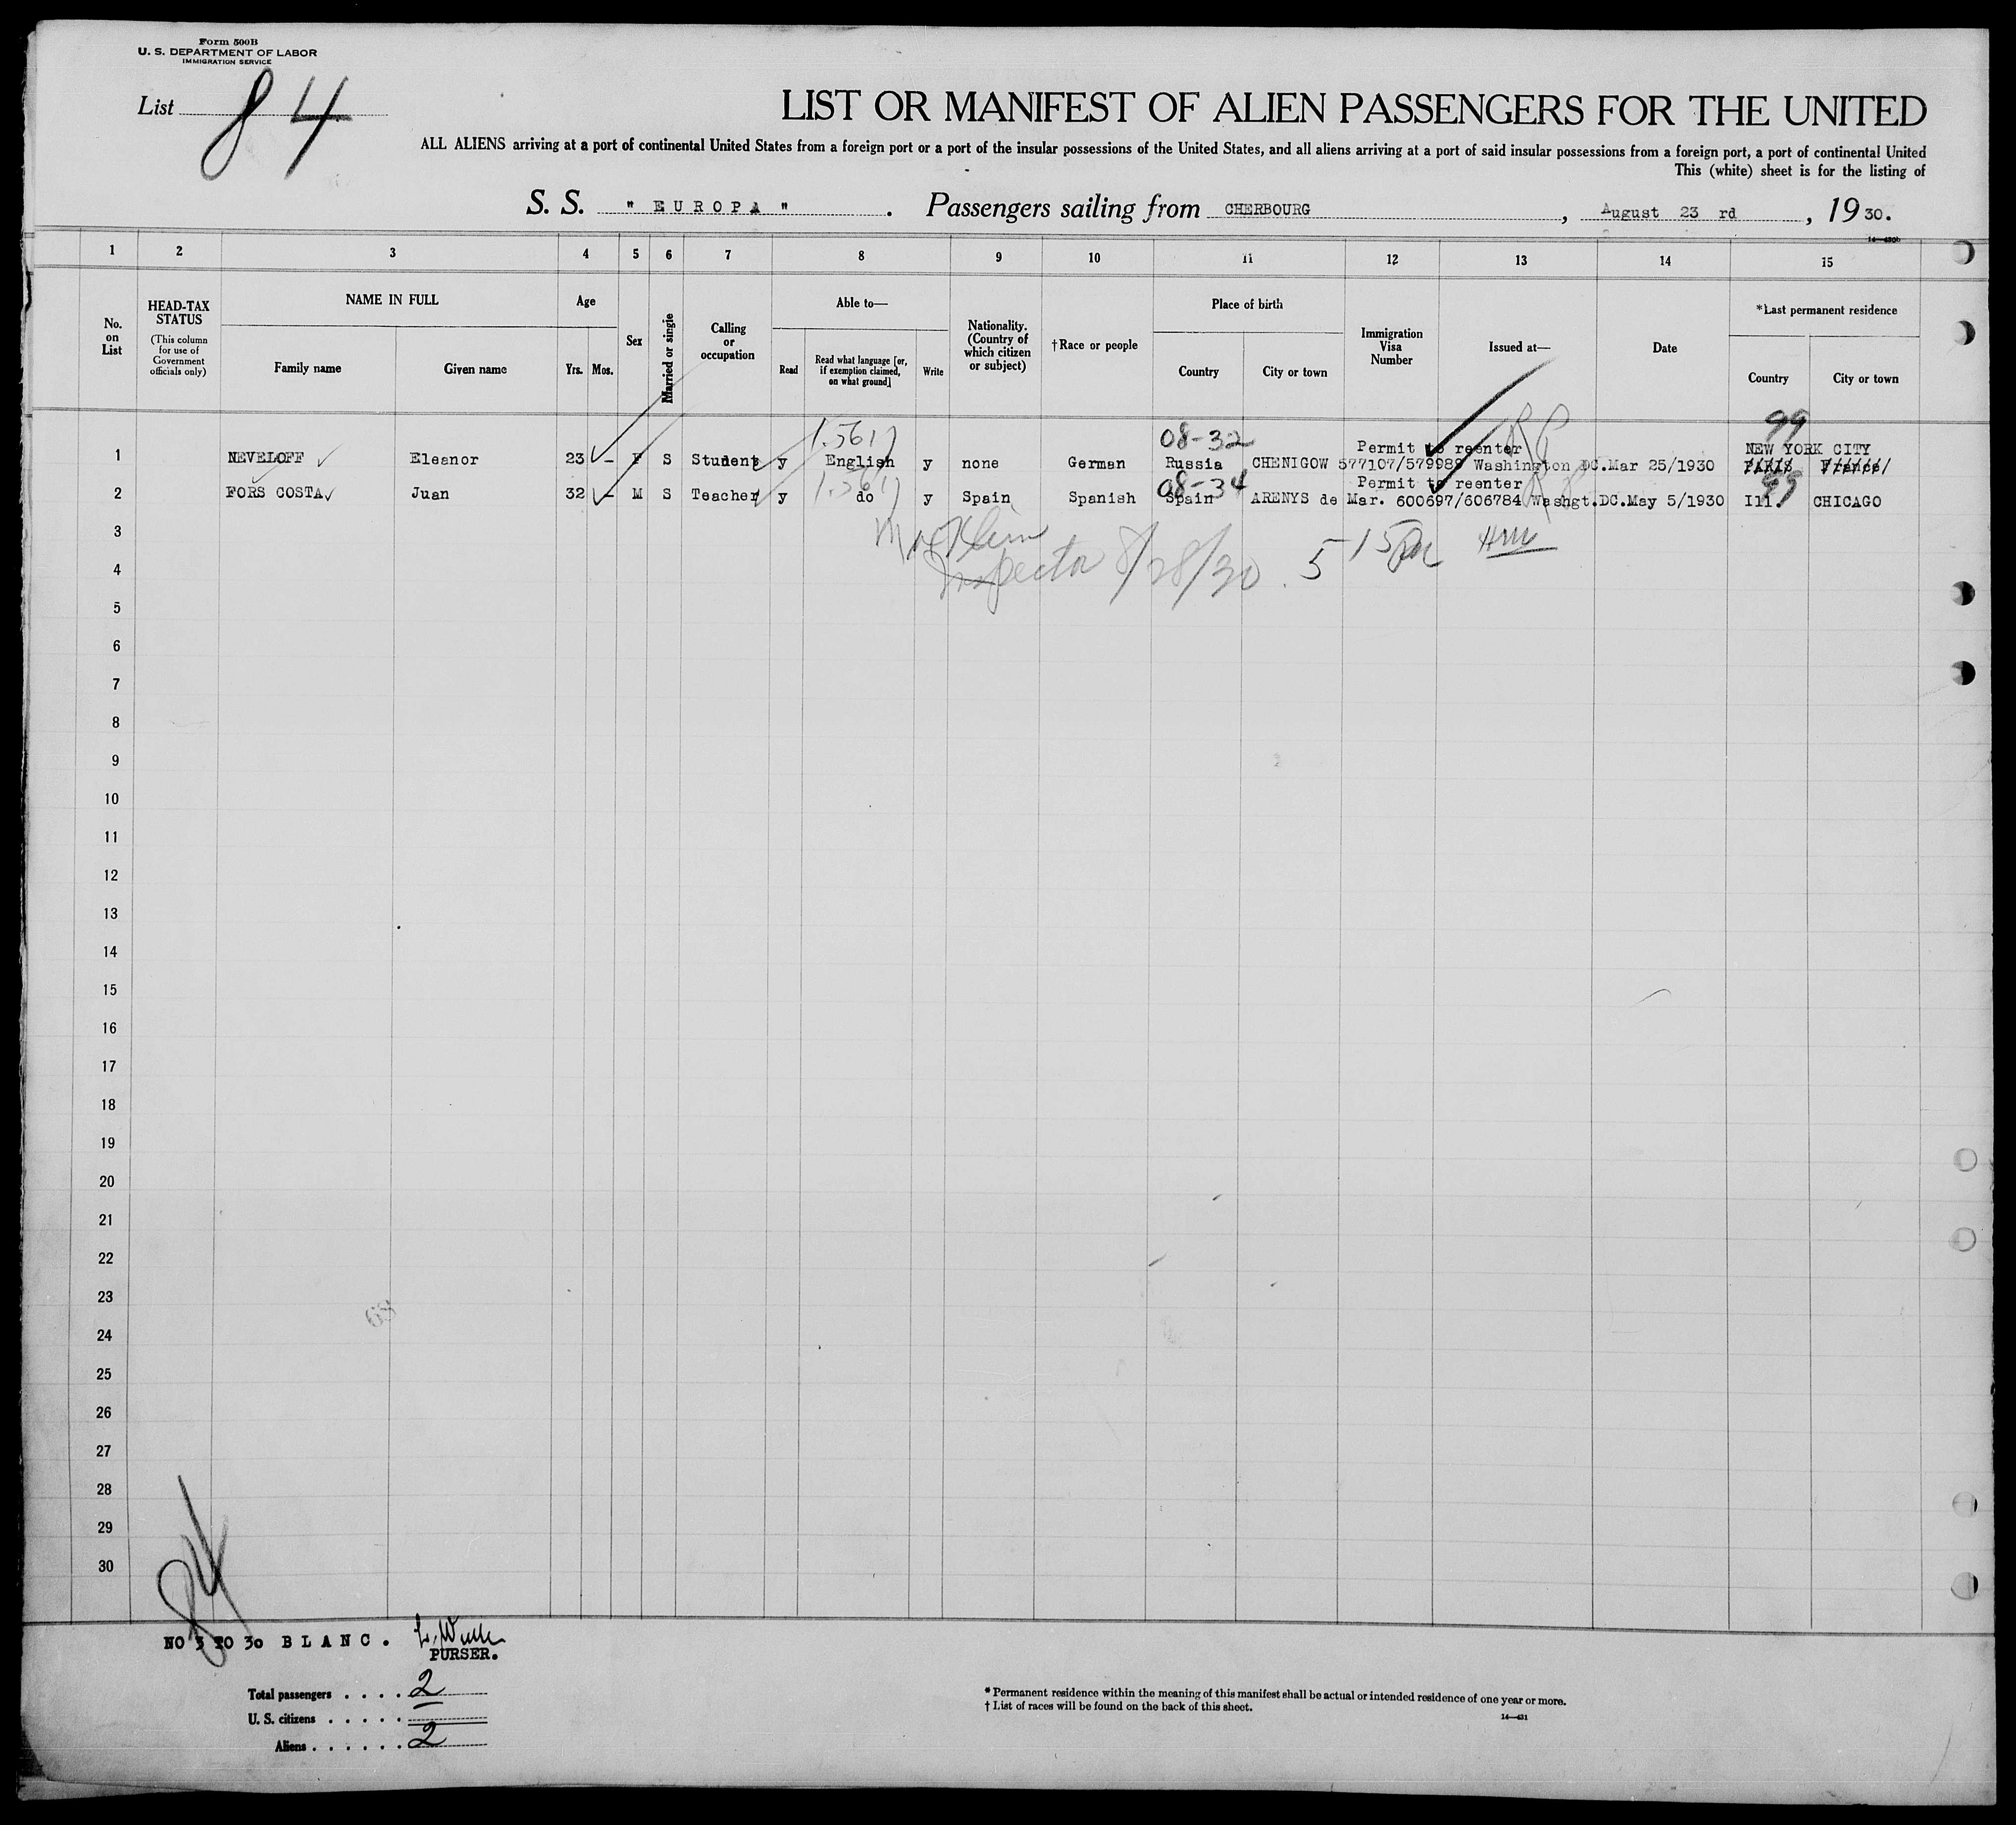 Form 500B
U. S. DEPARTMENT OF LABOR
IMMIGRATION SERVICE
List 84
LIST OR MANIFEST OF ALIEN PASSENGERS FOR THE UNITED
ALL ALIENS arriving at a port of continental United States from a foreign port or a port of the insular possessions of the United States, and all aliens arriving at a port of said insular possessions from a foreign port, a port of continental United
This (white) sheet is for the listing of
S. S. " EUROPA " . Passengers sailing from CHERBOURG , August 23 rd , 1930.
1 2 3 4 5 6 7 8 9 10 11 12 13 14 15
No. on List
HEAD-TAX STATUS
(This column for use of Government officials only)
NAME IN FULL
Family name
Given name
Age
Yrs. Mos.
Sex
Married or single
Calling or occupation
Able to—
Read
Read what language [or, if exemption claimed, on what ground]
Write
Nationality. (Country of which citizen or subject)
†Race or people
Place of birth
Country
City or town
Immigration Visa Number
Issued at—
Date
*Last permanent residence
Country
City or town
08-32 99
Permit to reenter NEW YORK CITY
1 NEVELOFF Eleanor 23 - F S Student y English y none German Russia CHENIGOW 577107/579989 Washington DC. Mar 25/1930 PARIS France
08-34 99
Permit to reenter
2 FORS COSTA Juan 32 - M S Teacher y do y Spain Spanish Spain ARENYS de Mar. 600697/606784 Washgt.DC. May 5/1930 Ill. CHICAGO
3
Inspector 8/28/30 5 15 PM
4
5
6
7
8
9
10
11
12
13
14
15
16
17
18
19
20
21
22
23
68
24
25
26
27
28
29
30
84
NO 3 TO 30 BLANC.
PURSER.
Total passengers . . . . 2
U. S. citizens . . . . .
Aliens . . . . . . 2
* Permanent residence within the meaning of this manifest shall be actual or intended residence of one year or more.
† List of races will be found on the back of this sheet.
14—431